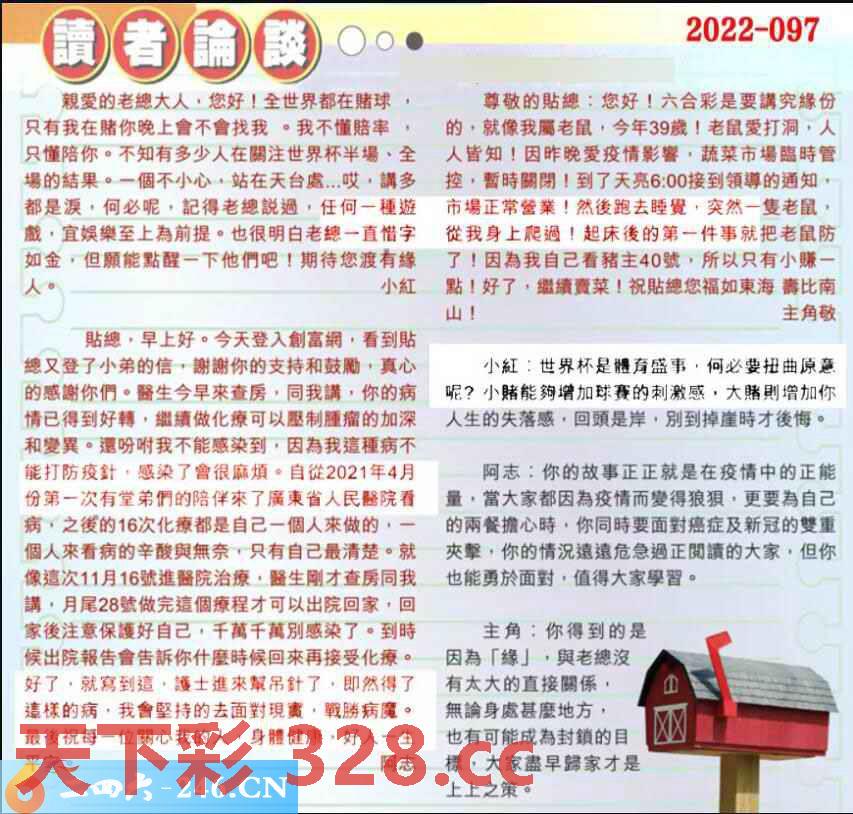 讀者論談
2022-097
親愛的老總大人，您好！全世界都在賭球，
只有我在賭你晚上會不會找我 。我不懂賠率 ，
只懂陪你。不知有多少人在關注世界杯半場、全
場的結果。一個不小心，站在天台處...哎，講多
都是淚，何必呢，記得老總説過，任何一種遊
戲，宜娛樂至上為前提。也很明白老總一直惜字
如金，但願能點醒一下他們吧！期待您渡有緣
人。 小紅
貼總，早上好。今天登入創富網，看到貼
總又登了小弟的信，謝謝你的支持和鼓勵，真心
的感謝你們。醫生今早來查房，同我講，你的病
情已得到好轉，繼續做化療可以壓制腫瘤的加深
和變異。還吩咐我不能感染到，因為我這種病不
能打防疫針，感染了會很麻煩。自從2021年4月
份第一次有堂弟們的陪伴來了廣東省人民醫院看
病，之後的16次化療都是自己一個人來做的，一
個人來看病的辛酸與無奈，只有自己最清楚。就
像這次11月16號進醫院治療，醫生剛才查房同我
講，月尾28號做完這個療程才可以出院回家，回
家後注意保護好自己，千萬千萬別感染了。到時
候出院報告會告訴你什麼時候回來再接受化療。
好了，就寫到這，護士進來幫吊針了，即然得了
這樣的病，我會堅持的去面對現實，戰勝病魔。
最後祝每一位關心我的人，身體健康，好人一生
平安。 阿志
尊敬的貼總：您好！六合彩是要講究緣份
的，就像我屬老鼠，今年39歲！老鼠愛打洞，人
人皆知！因昨晚愛疫情影響，蔬菜市場臨時管
控，暫時關閉！到了天亮6:00接到領導的通知，
市場正常營業！然後跑去睡覺，突然一隻老鼠，
從我身上爬過！起床後的第一件事就把老鼠防
了！因為我自己看豬主40號，所以只有小賺一
點！好了，繼續賣菜！祝貼總您福如東海 壽比南
山！ 主角敬
小紅：世界杯是體育盛事，何必要扭曲原意
呢? 小賭能夠增加球賽的刺激感，大賭則增加你
人生的失落感，回頭是岸，別到掉崖時才後悔。
阿志：你的故事正正就是在疫情中的正能
量，當大家都因為疫情而變得狼狽，更要為自己
的兩餐擔心時，你同時要面對癌症及新冠的雙重
夾擊，你的情況遠遠危急過正閱讀的大家，但你
也能勇於面對，值得大家學習。
主角：你得到的是
因為「緣」，與老總沒
有太大的直接關係，
無論身處甚麼地方，
也有可能成為封鎖的目
標，大家盡早歸家才是
上上之策。
天下彩 328.cc
二四六-246.CN